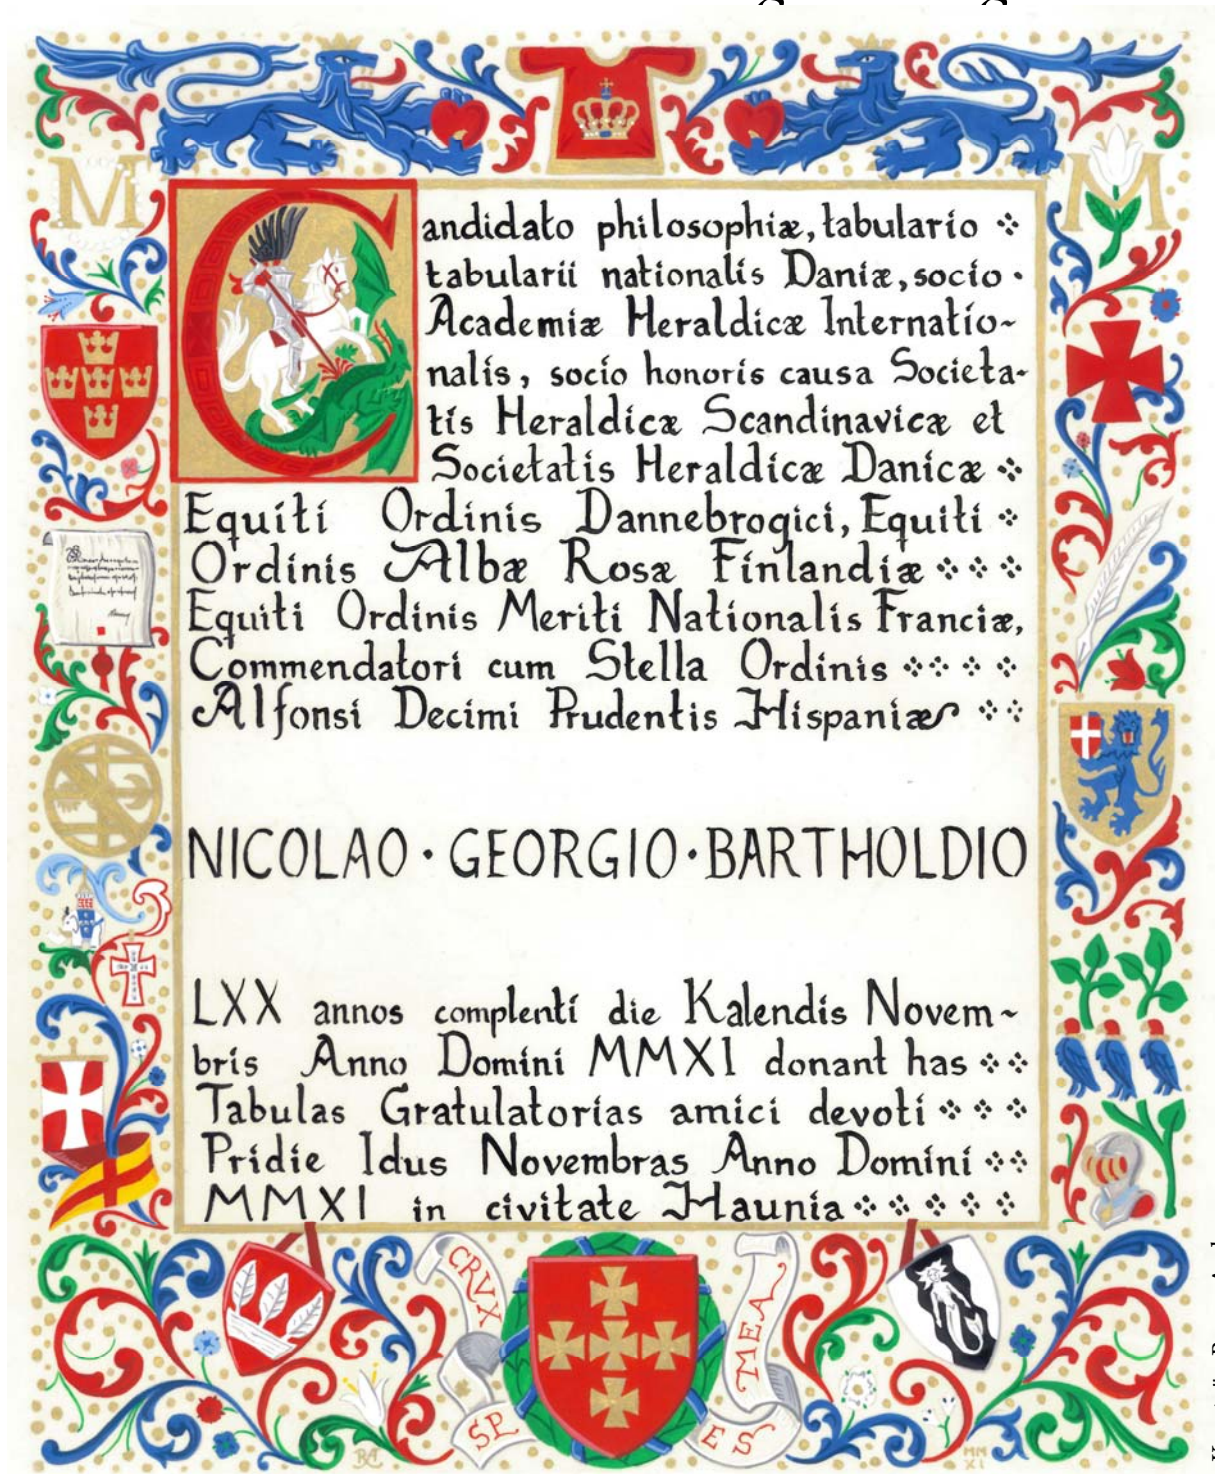 Candidato philosophiæ, tabulario
tabularii nationalis Daniæ, socio ·
Academiæ Heraldicæ Internatio~
nalis, socio honoris causa Societa-
tis Heraldicæ Scandinavicæ et
Societatis Heraldicæ Danicæ
Equiti Ordinis Dannebrogici, Equiti
Ordinis Albæ Rosæ Finlandiæ
Equiti Ordinis Meriti Nationalis Franciæ,
Commendatori cum Stella Ordinis
Alfonsi Decimi Prudentis Hispaniæ
NICOLAO · GEORGIO · BARTHOLDIO
LXX annos complenti die Kalendis Novem~
bris Anno Domini MMXI donant has
Tabulas Gratulatorias amici devoti
Pridie Idus Novembras Anno Domini
MMXI in civitate Haunia
M
M
CRVX
MEA
SP
ES
MM
XI